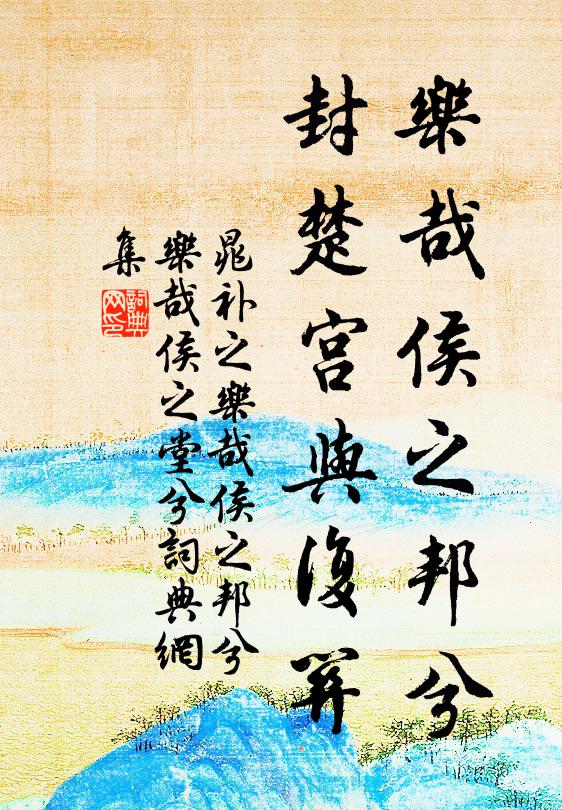 樂哉侯之邦兮
封楚宮與復關
晁补之樂哉侯之邦兮
樂哉侯之堂兮詞典網
集
詞典网印